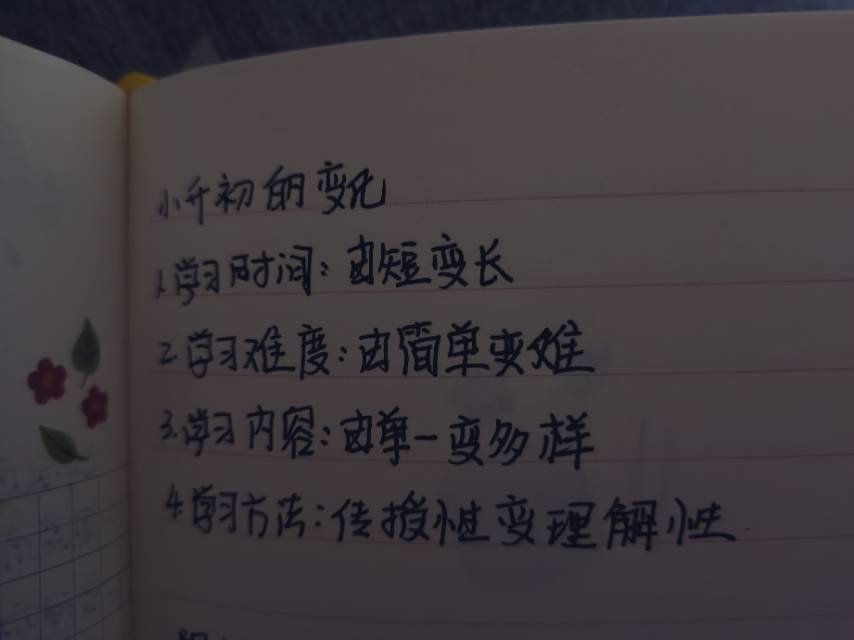 小升初的变化
1.学习时间：由短变长
2.学习难度：由简单变难
3.学习内容：由单一变多样
4.学习方法：传授性变理解性